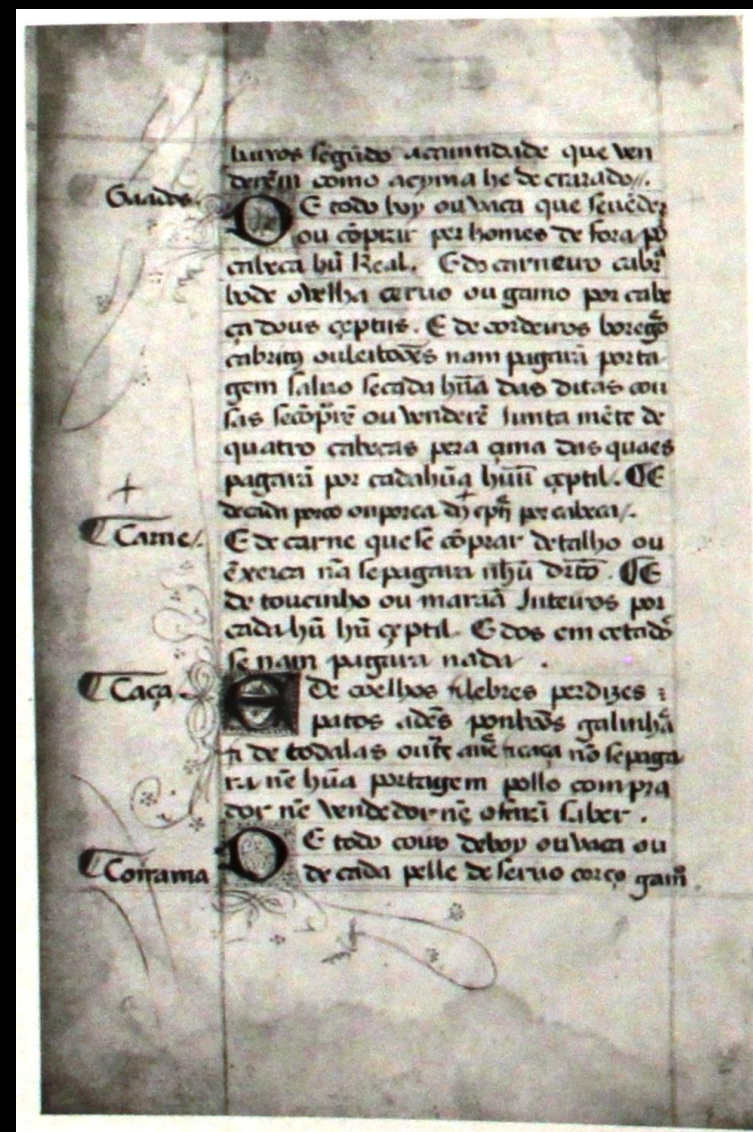 liuros segũdo acantidade que ven
derẽm como açyma he decrarado/.
Gaados.
DE todo boy ou vaca que se vẽder
ou cõprar per homẽs de fora pº
cabeca hũ Real. E do carneuro cabrª
bode ovelha ceruo ou gamo por cabe
ça dous çeptiis. E de cordeiros boregºs
cabritos ou leitoões nam pagarã porta
gem saluo se cada hũa das ditas cou
sas se cõprẽ ou venderẽ Iunta mẽte de
quatro cabecas pera çima das quaes
pagarã por cadahũa huũ çeptil. ¶E
de cada porco ou porca dij cptª per cabeca/.
¶Carne/.
E de carne que se cõprar de talho ou
ẽxerca nã se pagara nhũ drtº. ¶E
de toucinho ou marrã Inteiros por
cada hũ hũ çeptil. E dos em cetados
se nam pagara nada.
¶Caça.
E de coelhos lebres perdizes
patos adẽs ponbos galinhas
de todalas outras aues caça nõ se paga
ra nẽ hũa portagem pollo compra
dor nẽ vendedor nẽ o farã saber.
¶Coirama
DE todo couro de boy ou vaca ou
de cada pelle de seruo corço gamº